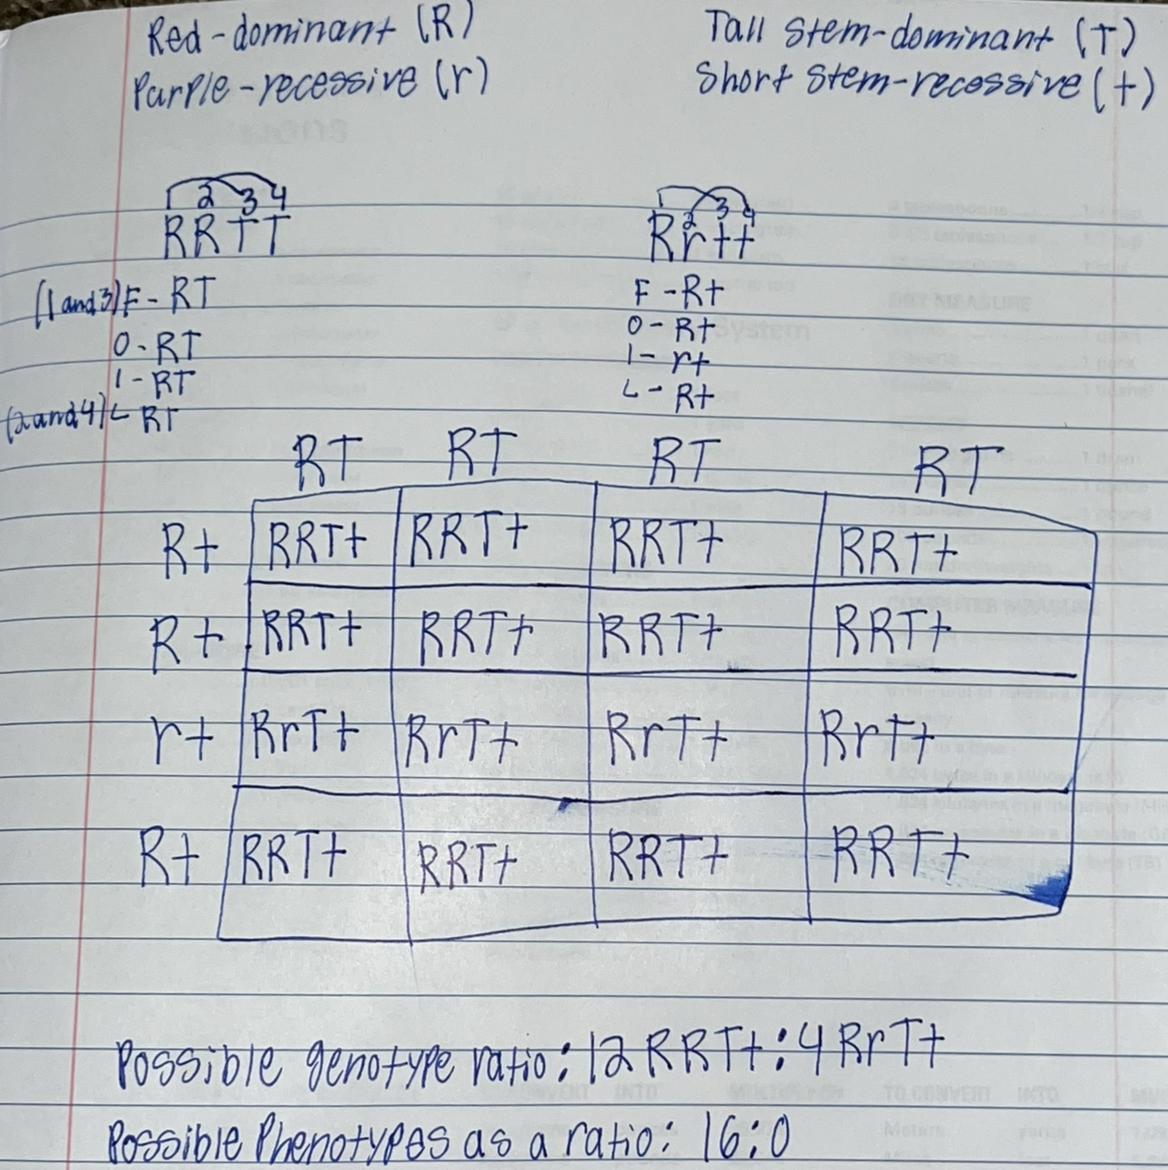 Red-dominant (R)
Purple-recessive (r)
Tall Stem-dominant (T)
Short Stem-recessive (t)
2 3 4
RRTT
(1 and 3) F - RT
O - RT
I - RT
(2 and 4) L RT
2 3 4
Rrtt
F - Rt
O - Rt
I - rt
L - Rt
RT RT RT RT
Rt RRTt RRTt RRTt RRTt
Rt RRTt RRTt RRTt RRTt
rt RrTt RrTt RrTt RrTt
Rt RRTt RRTt RRTt RRTt
Possible genotype ratio: 12 RRTt : 4 RrTt
Possible Phenotypes as a ratio: 16:0